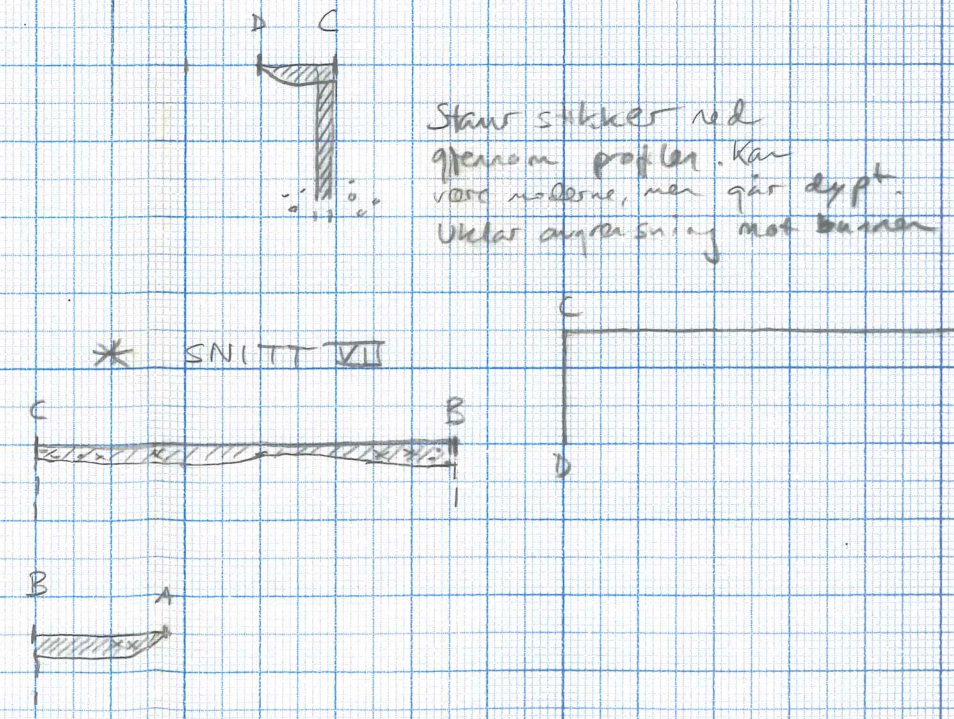 D C
Staur stikker ned
gjennom profilen. Kan
være moderne, men går dypt.
Uklar avgrensning mot bunnen
C
* SNITT VII
C B
D
B A